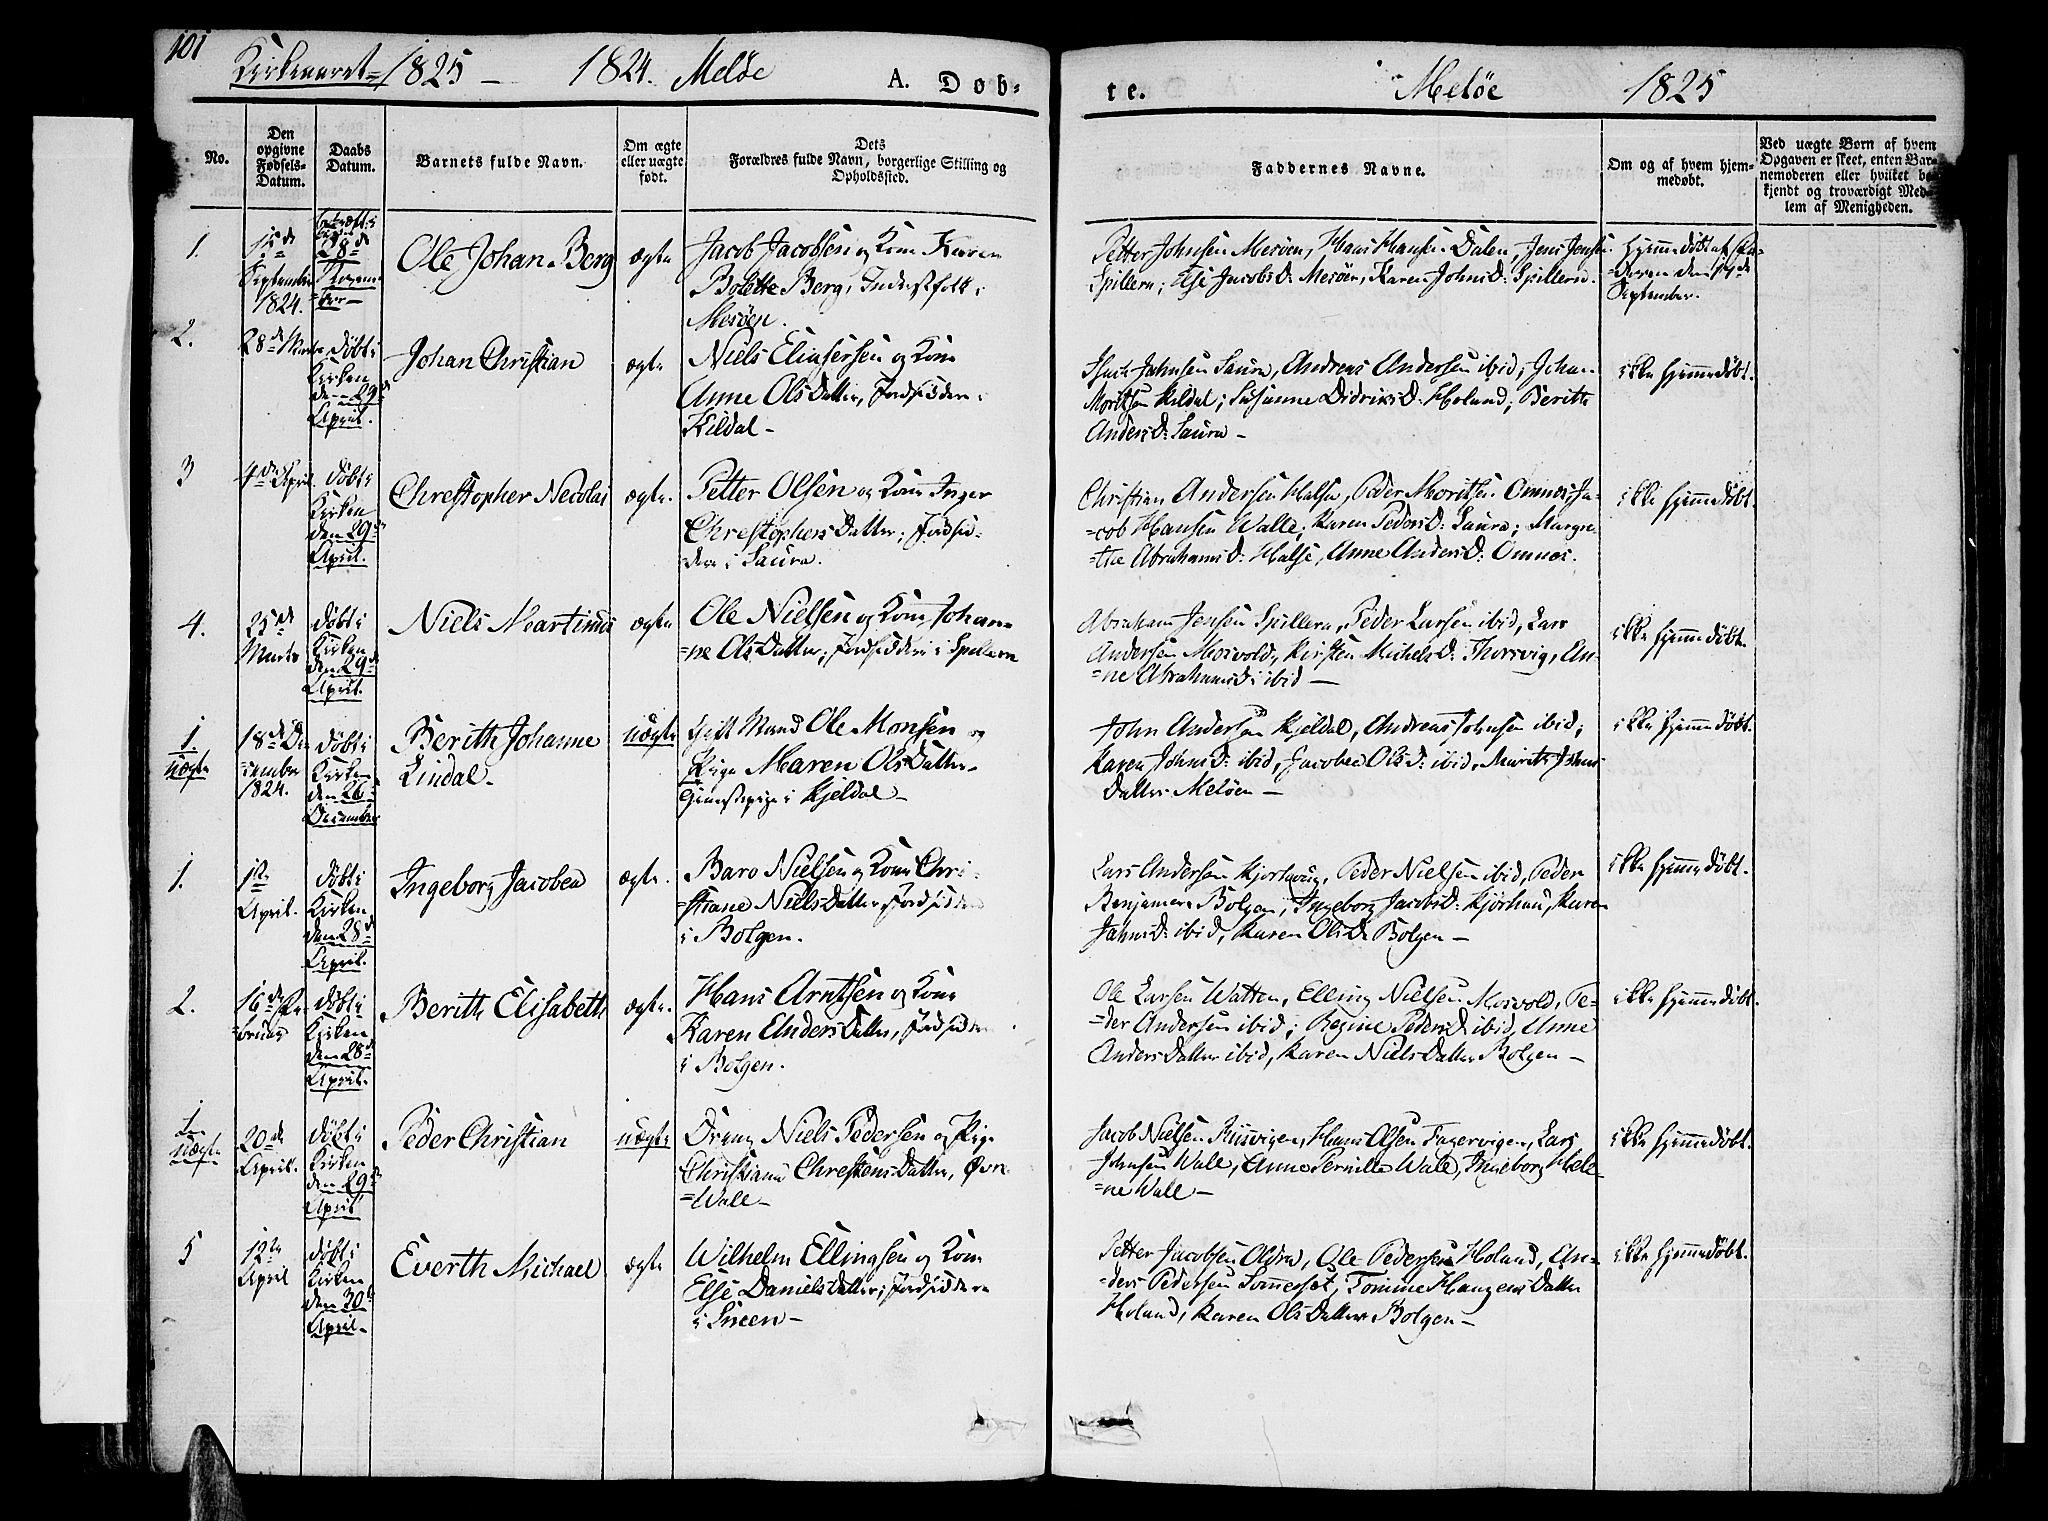 101
Kirkeaaret 1825 – 1824. Meløe A. Døb-
te. Meløe 1825
No.
Den
opgivne
Fødsels-
Datum.
Daabs
Datum.
Barnets fulde Navn.
Om ægte
eller uægte
født.
Dets
Forældres fulde Navn, borgerlige Stilling og
Opholdssted.
Faddernes Navne.
Om og af hvem hjem-
medøbt.
Ved uægte Børn af hvem
Opgaven er skeet, enten Bar-
nemoderen eller hvilket be-
kjendt og troværdigt Med-
lem af Menigheden.
1.
15de
September
1824.
28de
Novem-
=ber
Ole Johan Berg
ægte
Jacob Jacobsen og Kone Karen
Bolette Berg, Inderstfolk i
Mesøen.
Petter Johnsen Mesøen, Hans Hansen Dalen, Jens Jensen
Spillern; Else JacobsD. Mesøen, Karen JohnsD: Spillern.
Hjemmedøbt af
den 19de
September.
2.
28de Marts
døbt i
Kirken
den 29de
April.
Johan Christian
ægte
Niels Eliasersen og Kone
Anne OlsDatter, Jordsiddere i
Kildal –
Johnsen Saura, Andreas Andersen ibid, Johan
Moritsen Kildal; Susanne DidriksD: Holand; Berith
AndersD: Saura –
ikke hjemmedøbt.
3
4de April
døbt i
Kirken
den 29de
April.
Christopher Necolai
ægte.
Petter Olsen og Kone Inger
ChrestophersDatter; Jordsid-
=dere i Saura.
Christian Andersen Halse, Peder Moritsen Omnes, Ja-
=cob Hansen Walle; Karen PedersD: Saura; Margre-
=the AbrahamsD: Halse, Anne AndersD: Omnes.
ikke hjemmedøbt.
4.
25de
Marts
døbt i
Kirken
den 29de
April.
Niels Martinus
ægte
Ole Nielsen og Kone Johan-
=ne OlsDatter; Jordsiddere i Spillern
Abraham Jensen Spillern, Peder Larsen ibid, Lars
Andersen Mosvold, Kirsten MichelsD: Thorsvig, An-
=ne AbrahamsD: ibid –
ikke hjemmedøbt.
1.
uægte
18de De-
cember
1824.
døbt i
Kirken
den 26de
December
Berith Johanne
Lindal –
uægte
Gift Mand Ole Monsen og
Pige Maren OlsDatter –
Tjenestepige i Kjeldal –
John Andersen Kjeldal, Andreas Johnsen ibid;
Karen JohnsD: ibid, Jacobea OlsD: ibid, Marith Johns
Datter Meløen –
ikke hjemmedøbt.
1.
1ste
April.
døbt i
Kirken
den 28de
April.
Ingeborg Jacobea
ægte.
Baro Nielsen og Kone Chri-
=stiane NielsDatter, Jordsiddere
i Bolgen.
Lars Andersen Kjørhaug, Peder Nielsen ibid, Peder
Benjamens Bolgen, Ingeborg JacobsD: Kjørhau, Karen
JohnsD: ibid, Karen OlsD: Bolgen –
ikke hjemmedøbt.
2.
16de Fe-
=bruar
døbt i
Kirken
den 28de
April.
Berith Elisabeth
ægte.
Hans Arntsen og Kone
Karen AndersDatter, Jordsiddere
i Bolgen.
Ole Larsen Watten, Elling Nielsen Mosvold, Pe-
=der Andersen ibid; Regine PedersD ibid, Anne
AndersDatter ibid, Karen NielsDatter Bolgen –
ikke hjemmedøbt.
1.
uægte
20de
April.
døbt i
Kirken
den 29de
April
Peder Christian
uægte
Dreng Niels Pedersen og Pige
Christiana ChrestensDatter, Øvre
=Wall –
Jacob Nielsen Rusvigen, Hans Olsen Fagervigen, Lars
Johnsen Wall, Anne Pernilla Wale, Ingeborg Hele-
=ne Wall –
ikke hjemmedøbt.
5
12te
April
døbt i
Kirken
den 30te
April –
Everth Michael
ægte
Wilhelm Ellingsen og Kone
Else DanielsDatter; Jordsiddere
i Sneen –
Petter Jacobsen Oldra, Ole Pedersen Holand, An-
=ders Pedersen Sommerset, Tomine HangensDatter
Holand, Karen OlsDatter Bolgen –
ikke hjemmedøbt.